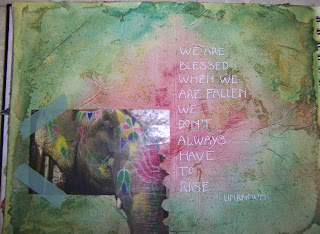 WE ARE
BLESSED
WHEN WE
ARE FALLEN
WE
DON'T
ALWAYS
HAVE
TO
RISE.
UNKNOWN